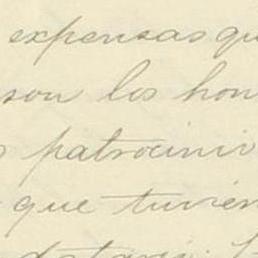 expensas qu
son los hon
patrocinio
que tuvier